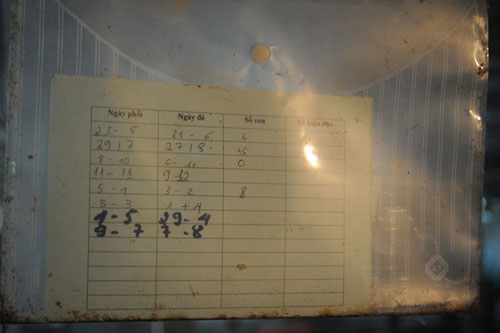 Ngày phối Ngày đẻ Số con
23 - 5 21 - 6 6
29 / 7 27 / 8
8 - 10 6 - 11 0
11 - 11 9 - 12
5 - 1 3 - 2 8
3 - 3
1 - 5 29 - 4
9 - 7 7 - 8